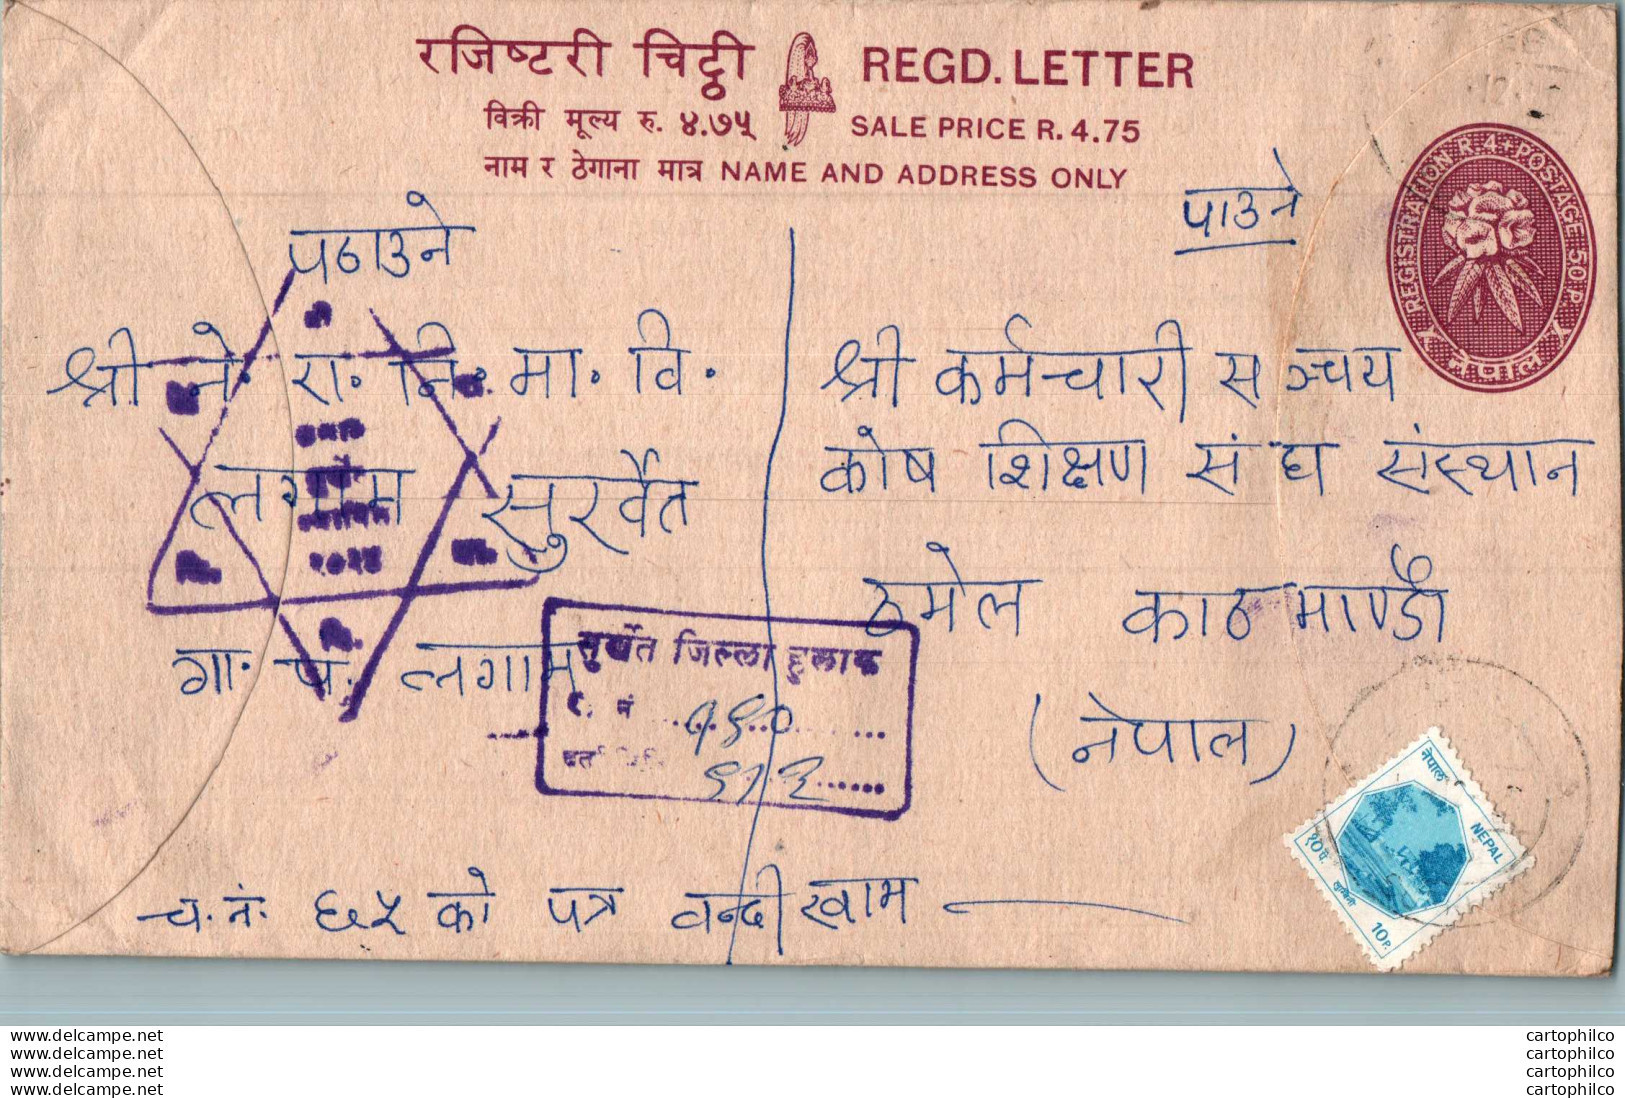 रजिष्टरी चिट्ठी REGD. LETTER
विक्री मूल्य रु. ४.७५ SALE PRICE R. 4.75
नाम र ठेगाना मात्र NAME AND ADDRESS ONLY
REGISTRATION R 4+POSTAGE 50 P.
नेपाल
पठाउने
श्री ने. रा. नि. मा. वि.
लगाम सुर्खेत
गा. पं. लगाम
२०१४
पाउने
श्री कर्मचारी सञ्चय
कोष शिक्षण संघ संस्थान
ठमेल काठमाण्डौ
(नेपाल)
सुर्खेत जिल्ला हुलाक
र. नं
दर्ता
च. नं. ६५ को पत्र वन्दी खाम
नेपाल
NEPAL
१० पै.
लुम्बिनी
10 P.
delcampe.net
delcampe.net
delcampe.net
delcampe.net
cartophilco
cartophilco
cartophilco
cartophilco